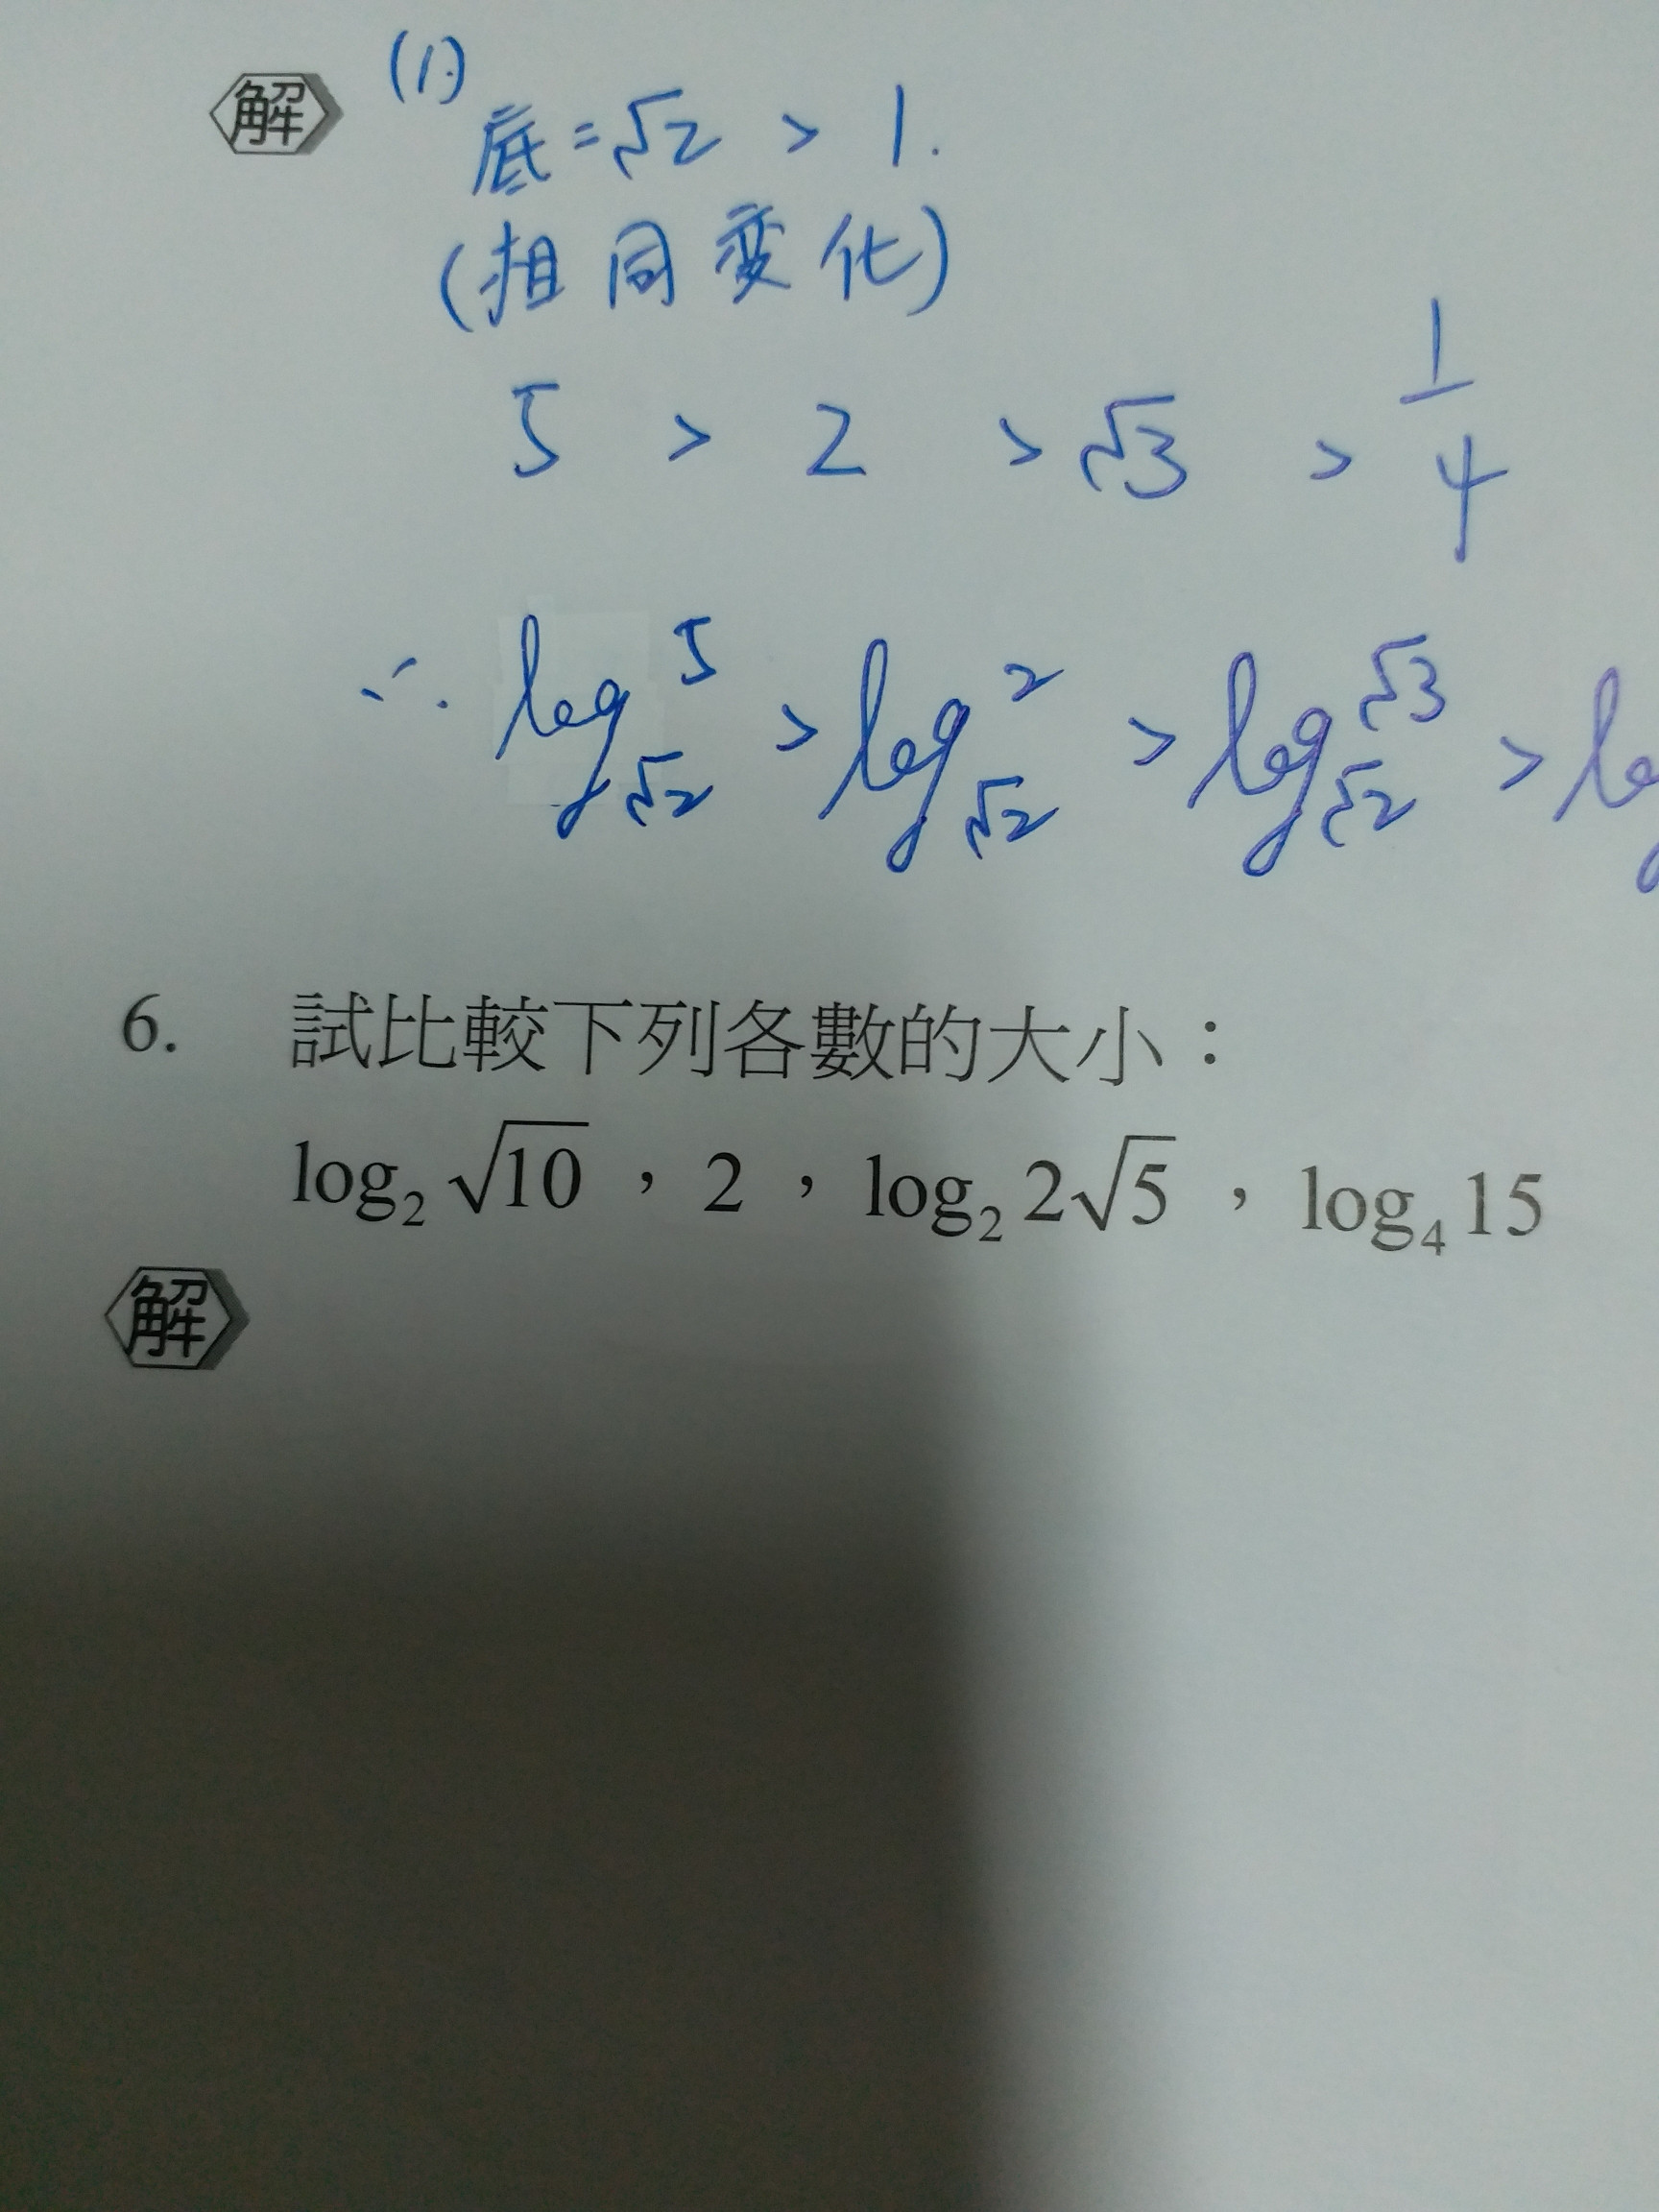 解 (1)
底 = √2 > 1.
(相同变化)
5 > 2 > √3 > 1/4
∴ log_√2 5 > log_√2 2 > log_√2 √3 >
6. 試比較下列各數的大小：
log₂√10，2，log₂2√5，log₄15
解